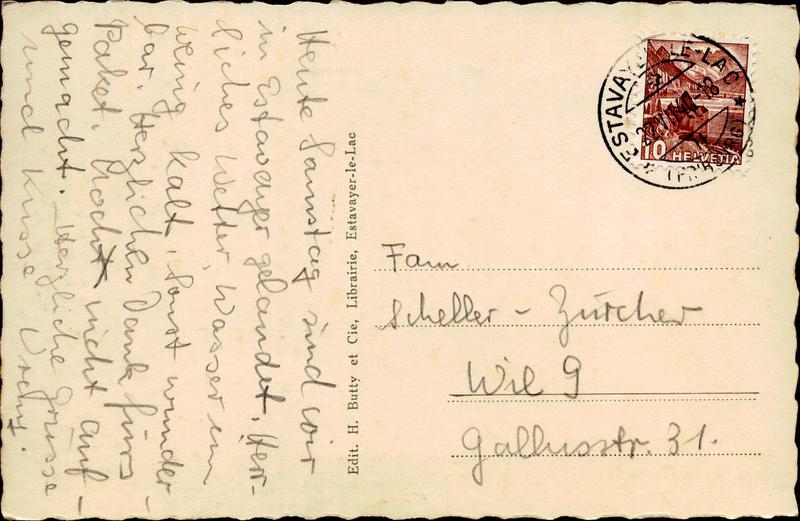 Heute Samstag sind wir
in Estavayer gelandet. Herr-
liches Wetter, Wasser ein
wenig kalt, sonst wunder-
bar. Herzlichen Dank fürs
Paket. Noch nicht auf-
gemacht. Herzliche Grüsse
und Küsse
Edit. H. Butty et Cie, Librairie, Estavayer-le-Lac
ESTAVAYER-LE-LAC
10 HELVETIA
Fam
Scheller - Zürcher
Wil 9
Gallusstr. 31.